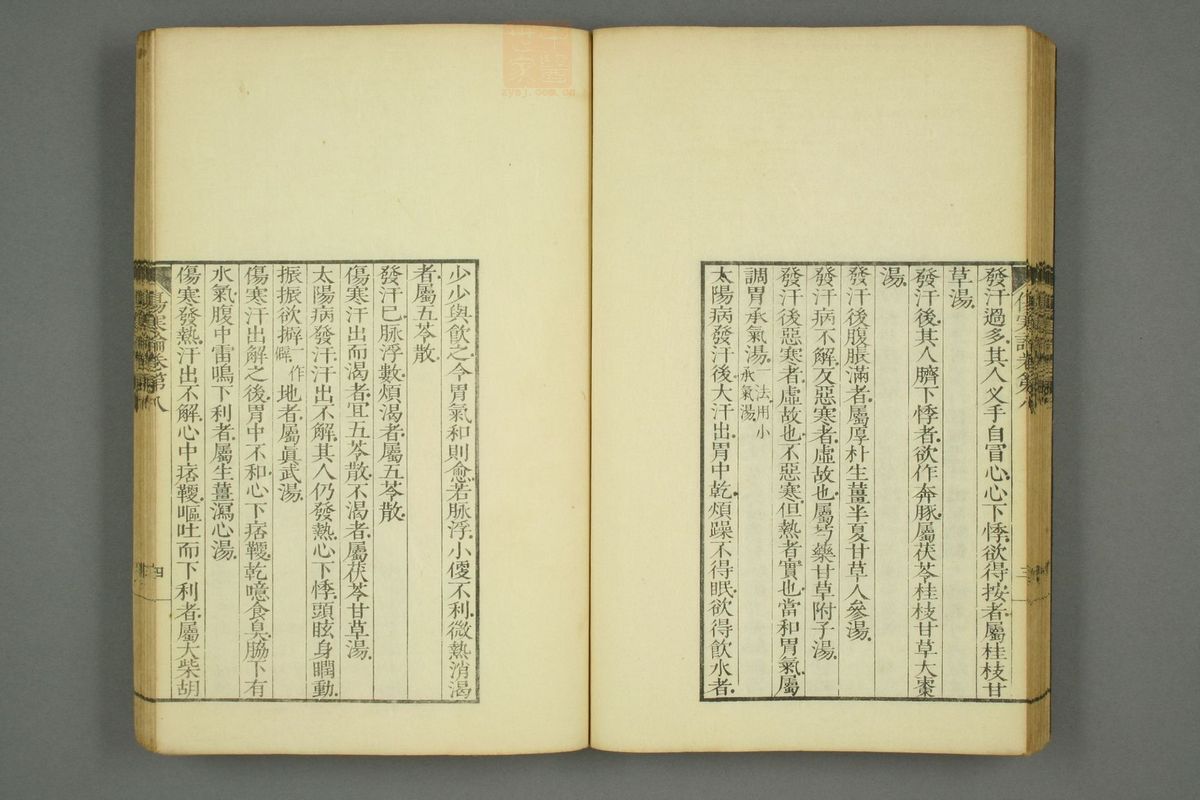 傷寒論卷第八
發汗過多。其人叉手自冒心。心下悸。欲得按者。屬桂枝甘
草湯。
發汗後。其人臍下悸者。欲作奔豚。屬茯苓桂枝甘草大棗
湯。
發汗後。腹脹滿者。屬厚朴生薑半夏甘草人參湯。
發汗病不解。反惡寒者。虛故也。屬芍藥甘草附子湯。
發汗後。惡寒者。虛故也。不惡寒。但熱者。實也。當和胃氣。屬
調胃承氣湯。一法用小承氣湯。
太陽病。發汗後。大汗出。胃中乾。煩躁不得眠。欲得飲水者。
少少與飲之。令胃氣和則愈。若脉浮。小便不利。微熱消渴
者。屬五苓散。
發汗已。脉浮數。煩渴者。屬五苓散。
傷寒汗出而渴者。宜五苓散。不渴者。屬茯苓甘草湯。
太陽病發汗。汗出不解。其人仍發熱。心下悸。頭眩身瞤動。
振振欲擗一作僻地者。屬眞武湯。
傷寒汗出解之後。胃中不和。心下痞鞕。乾噫食臭。脇下有
水氣。腹中雷鳴下利者。屬生薑瀉心湯。
傷寒發熱。汗出不解。心中痞鞕。嘔吐而下利者。屬大柴胡
傷寒論卷第八
四
中醫世家
zysj.com.cn